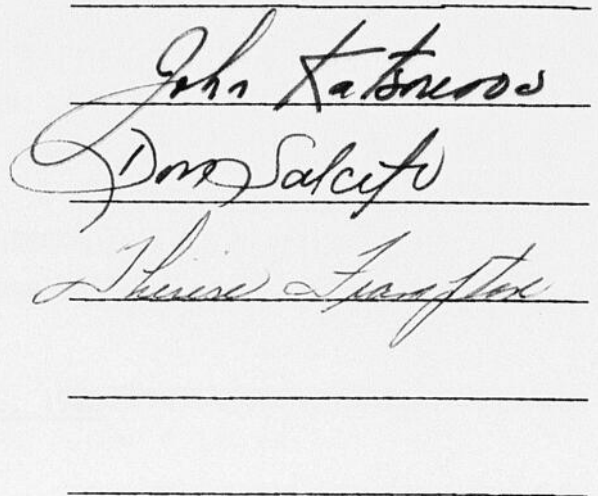 John Katsoneos
Don Salcito
Therese Frampton